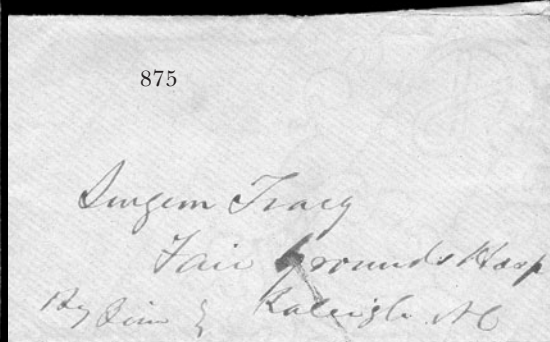 875
Surgeon Tracy
Fair Grounds Hosp
By Jim Raleigh NC